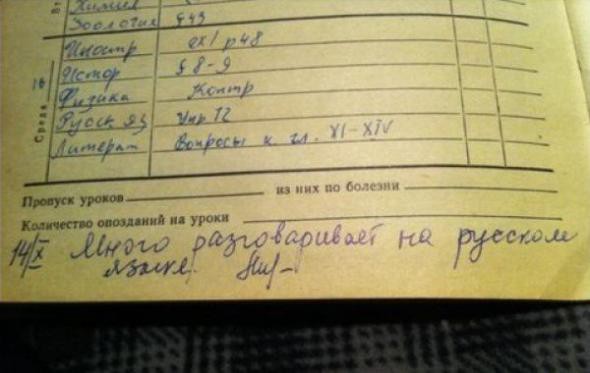 Химия
Зоология §43
Иностр ex1 p48
Истор § 8-9
Физика Контр
Русск яз Упр 72
Литерат Вопросы к гл. XI-XIV
Среда 16
Пропуск уроков из них по болезни
Количество опозданий на уроки
14/X Много разговаривает на русском
языке.